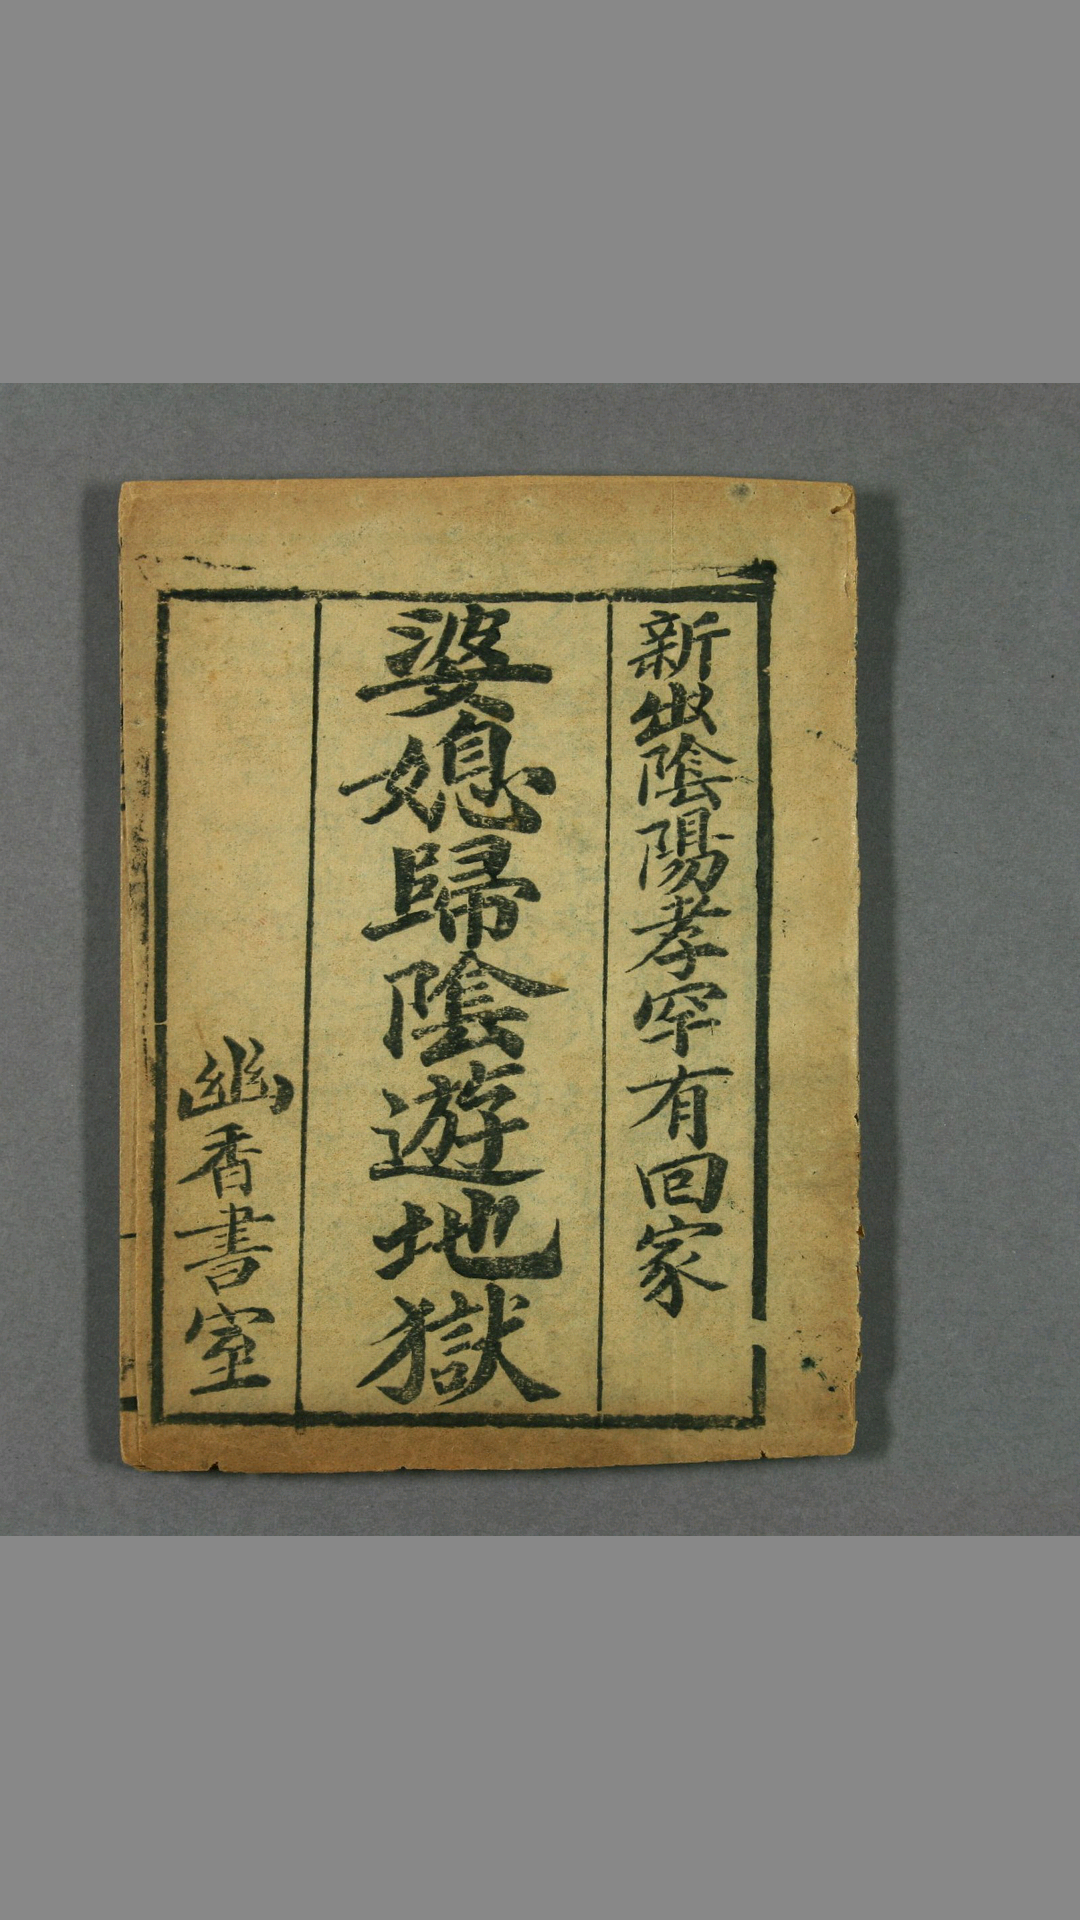 新出陰陽孝罕有回家
婆媳歸陰遊地獄
幽香書室